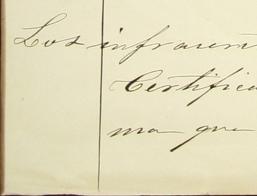 Los infrascri
Certifica
ma que